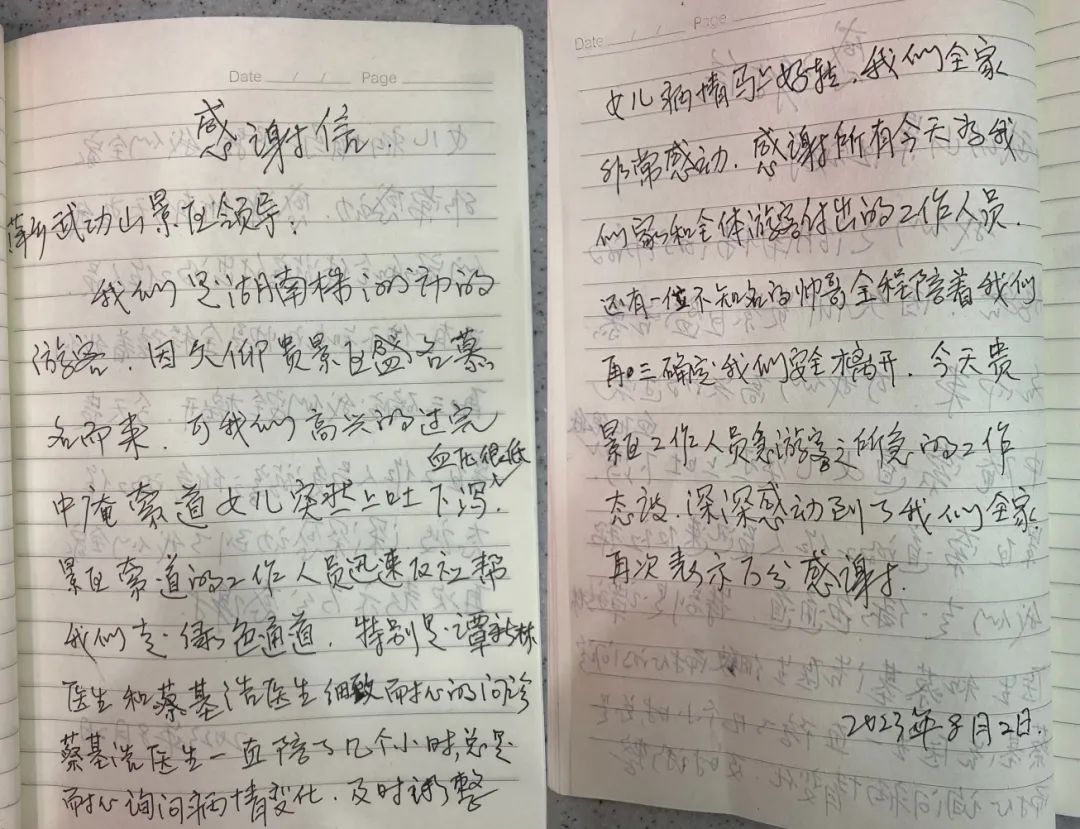 Date / / Page
感谢信.
萍乡武功山景区领导:
我们是湖南株洲的
游客.因久仰贵景区盛名慕
名而来.可我们高兴的过完
血压很低
中庵索道女儿突然上吐下泻.
景区索道的工作人员迅速反应帮
我们走绿色通道.特别是谭林
医生和蔡基浩医生细致而耐心的问诊
蔡基浩医生一直陪了几个小时,总是
耐心询问病情变化.及时调整
Date / / Page
女儿病情马上好转.我们全家
非常感动.感谢所有今天为我
们家和全体游客付出的工作人员.
还有一位不知名的帅哥全程陪着我们
再三确定我们安全离开.今天贵
景区工作人员急游客之所急的工作
态度.深深感动到了我们全家.
再次表示万分感谢.
2023年8月2日.